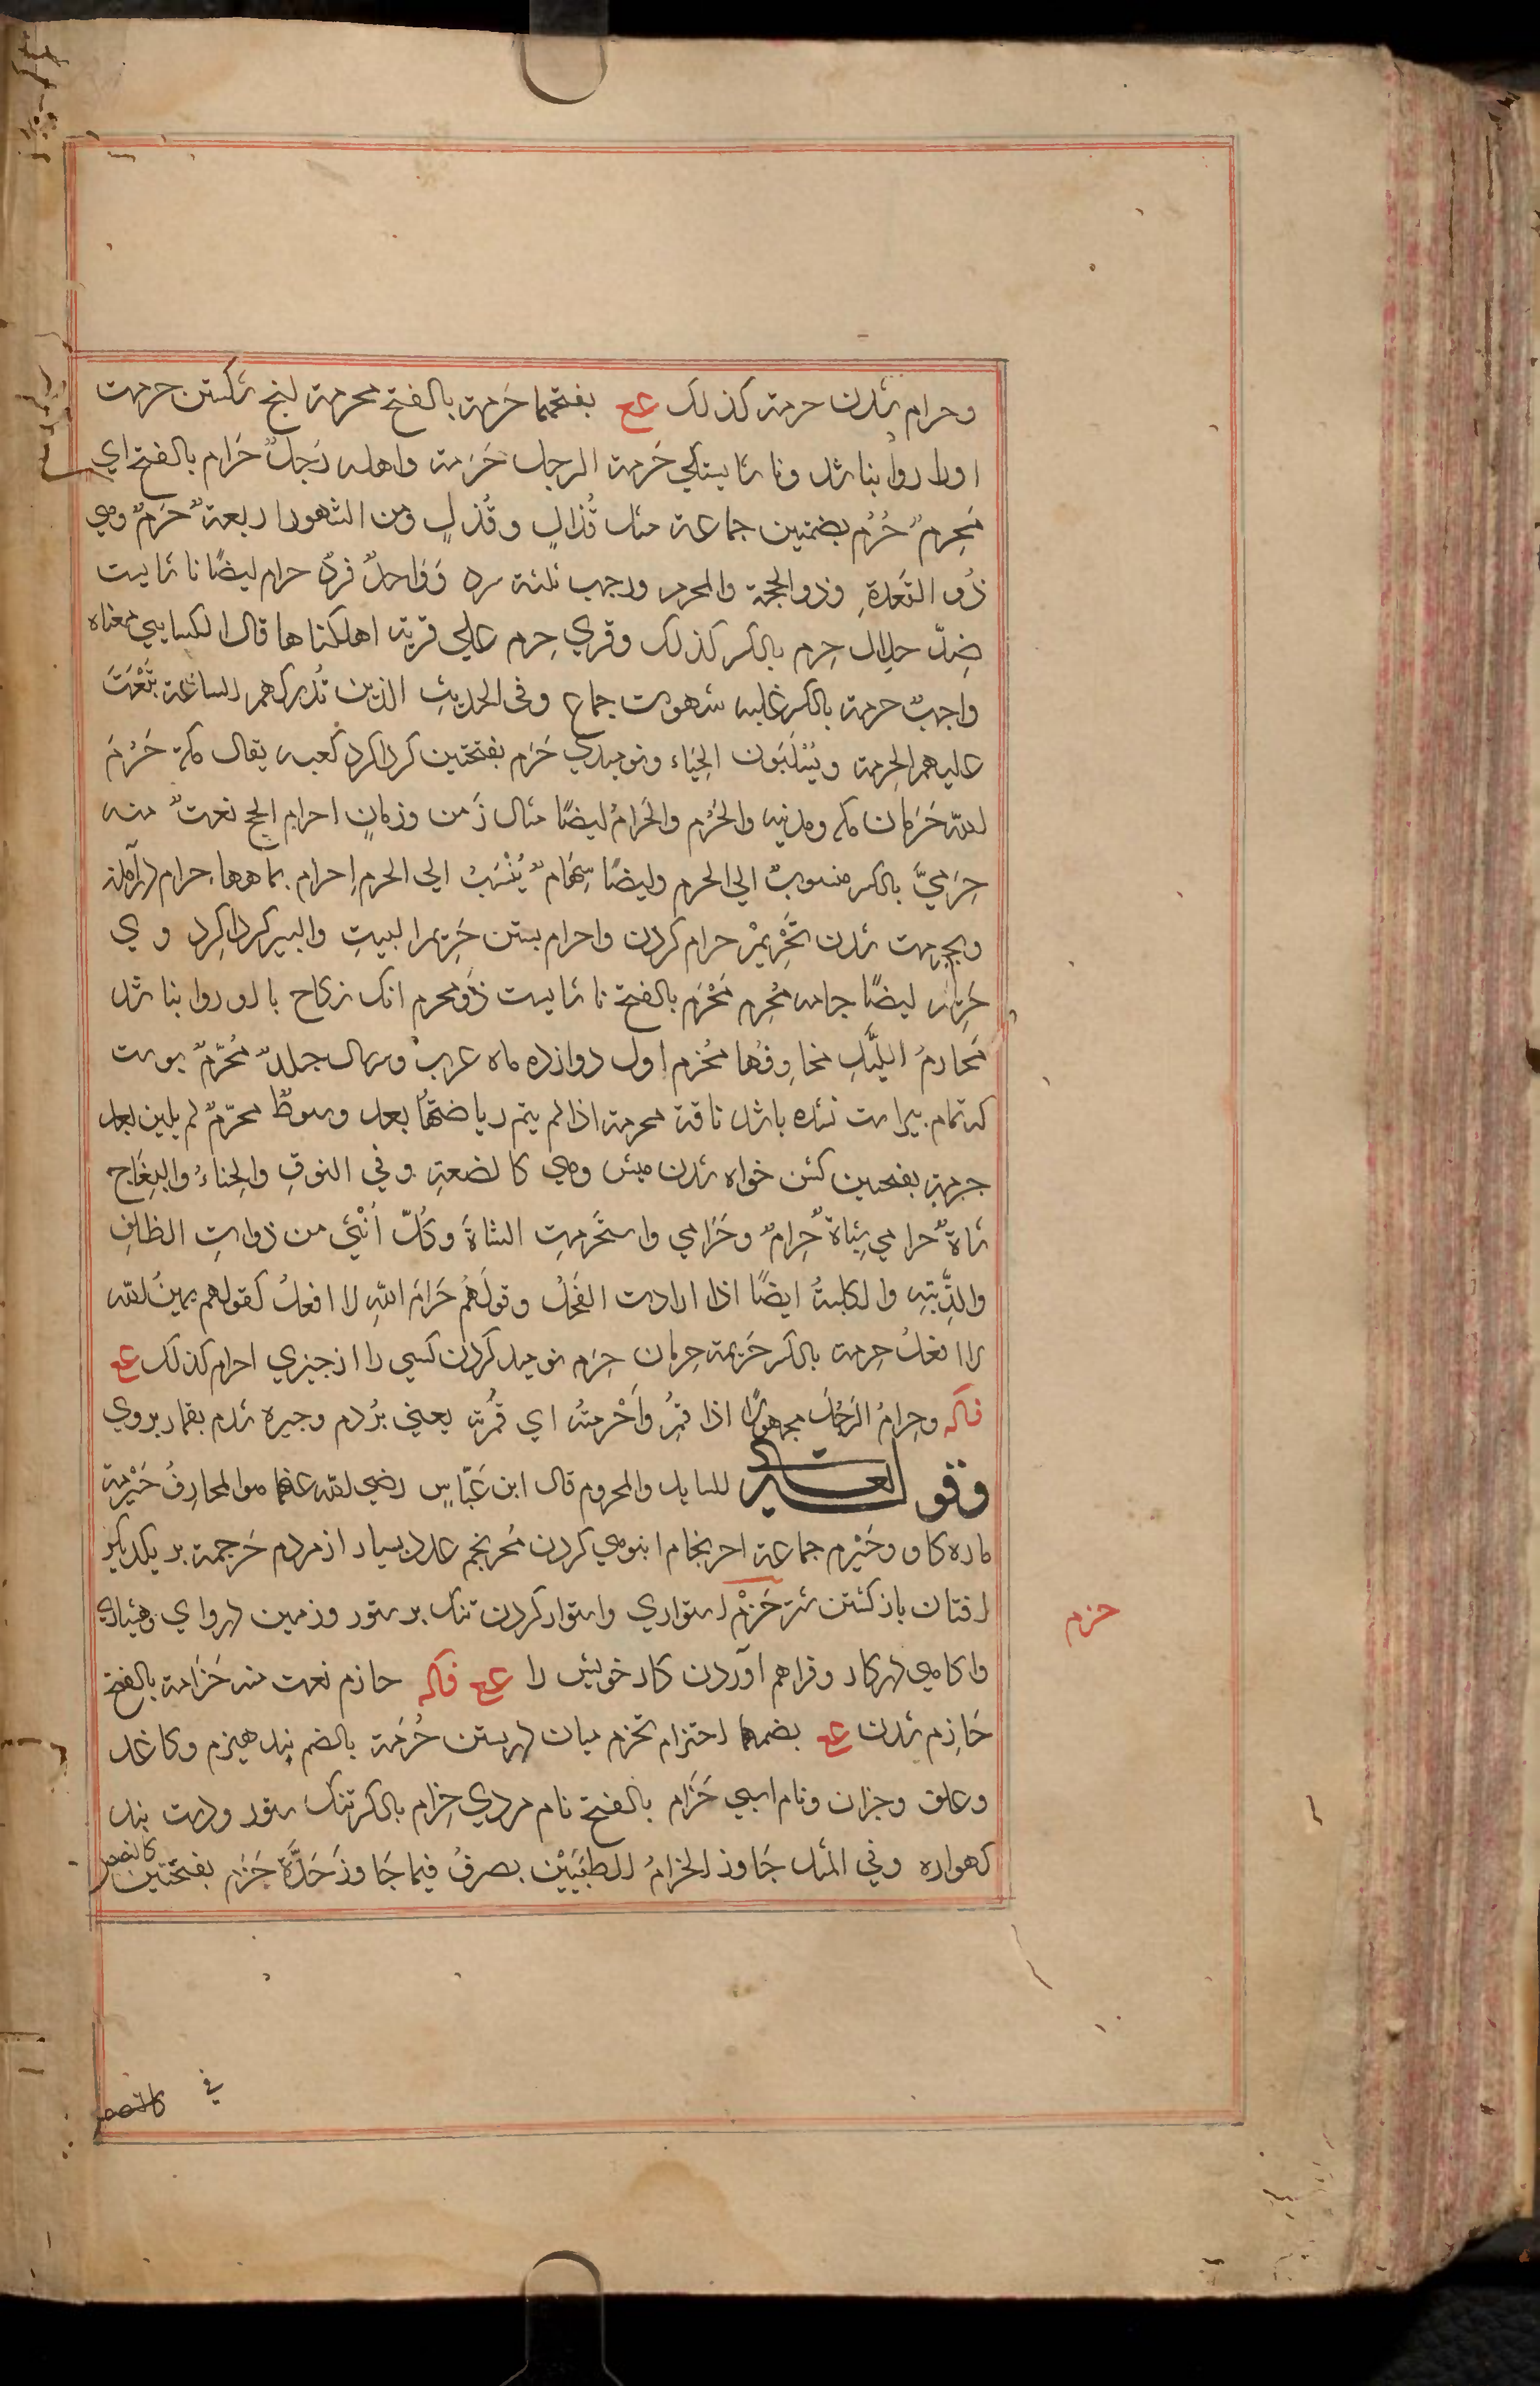 وحرام شدن حرمة كذلك عع بفتحهما حَرمة بالفتح محرمة انج شكستن حرمت
او را روا بنا شد و نا شايستكي حَرمة الرجل حَرَمة واهله رَجلٌ حَرام بالفتح اي
مَحرِمٌ حُرُم بضمتين جماعة مثل قُذالٍ وقُذلٍ ومن الشهور اربعةٌ حرمٌ وهي
ذُو القعدةِ وذو الحجة والمحرم ورجب ثلثة سرد وَوَاحدٌ فردٌ حرام ايضًا نا شايست
ضِدّ حلال حِرم بالكسر كذلك وقري حِرم علي قرية اهلكناها قال الكسايي معناه
واجبٌ حرمة بالكسر غلبه شهوت جماع وفى الحديث الذين تُدركهم الساعة تُبْعَثُ
عليهم الحِرمة ويُسْلَبُون الحَياء ونوميدي حَرَم بفتحتين كرداكرد كعبه يقال مكة حَرَمُ
الله حَرَمان مكه ومدينه والحَرَم والحَرامُ ايضًا مثال زَمن وزمانٍ احرام الحج نعتٌ منه
حِرَميّ بالكسر منسوبٌ الي الحرم وايضًا سِهَامٌ يُنْسَبُ الي الحرم اِحرام بماهها حرام درآمدن
وبحرمت شدن تَحْرِيمْ حرام كردن واحرام بستن حَرِيم البيتِ والبير كرداكرد وي
حَرِيم ايضًا جامه مُحْرِم مَحْرَم بالفتح نا شايست ذُو محرم انك نكاح با او روا بنا شد
مَحارِمُ الليلِ مخاوِفُها مُحَرم اول دوازده ماه عرب وسال جلدٌ مُحَرَّمٌ پوست
كه تمام پيراست نشده باشد ناقة محرمة اذا لم يتم رياضتُها بعد وسَوطٌ محرّمٌ لم يلين بعد
حرمة بفتحتين كشن خواه شدن ميش وهي كالضعةِ في النوقِ والحِناءُ والنِعَاجِ
شاةٌ حرامي شِياهٌ حِرامٌ وحَرَامي واستَحرمتِ الشاةُ وكُلّ اُنْثي من ذواتِ الظلفِ
والذِّئبةِ والكلبةُ ايضًا اذا ارادت الفَحْلَ وقولُهُم حَرَامَ اللهِ لا افعلُ كقولهم يمينُ الله
لا افعلُ حِرمة بالكسر حَرِيمة حِرمان حِرَم نوميد كردن كسي را از چيزي احرام كذلك عع
فاكه وحِرامُ الرَجُلُ مجهولًا اذا قُمِرَ واَحْرمتُه اي قَمَرته يعني بُردم وچيره شدم بقمار بروي
وقو له تعالي للسايل والمحروم قال ابن عَبّاسٍ رضي الله عنهما هو المحارفُ حَيْرمة
ماده كاو وحَيْرم جماعة احرنجام انبوهي كردن مُحرنجِم عدد بسيار از مردم حَرجمة بر يكديكر
افتان باز كشتن شتر حَزْم استواري واستوار كردن تنك بر ستور وزمين هرواي وهشياري
واكاهي در كار وفراهم آوردن كار خويش را عع فاكه حازم نعت منه حَزَامة بالفتح
حَازِم شدن عع بضمها احتزام تحزم ميان در بستن حُزمة بالضم بند هيزم وكاغد
وعلف وجزان ونام اسپي حَزَام بالفتح نام مردي حِزام بالكسر تنك ستور ودست بند
كهواره وفي المثل جَاوز الحِزامُ الطبيين يصرفُ فيما جَاوزَ حَدَّه حَزَم بفتحتين كالغصص
حزم
في